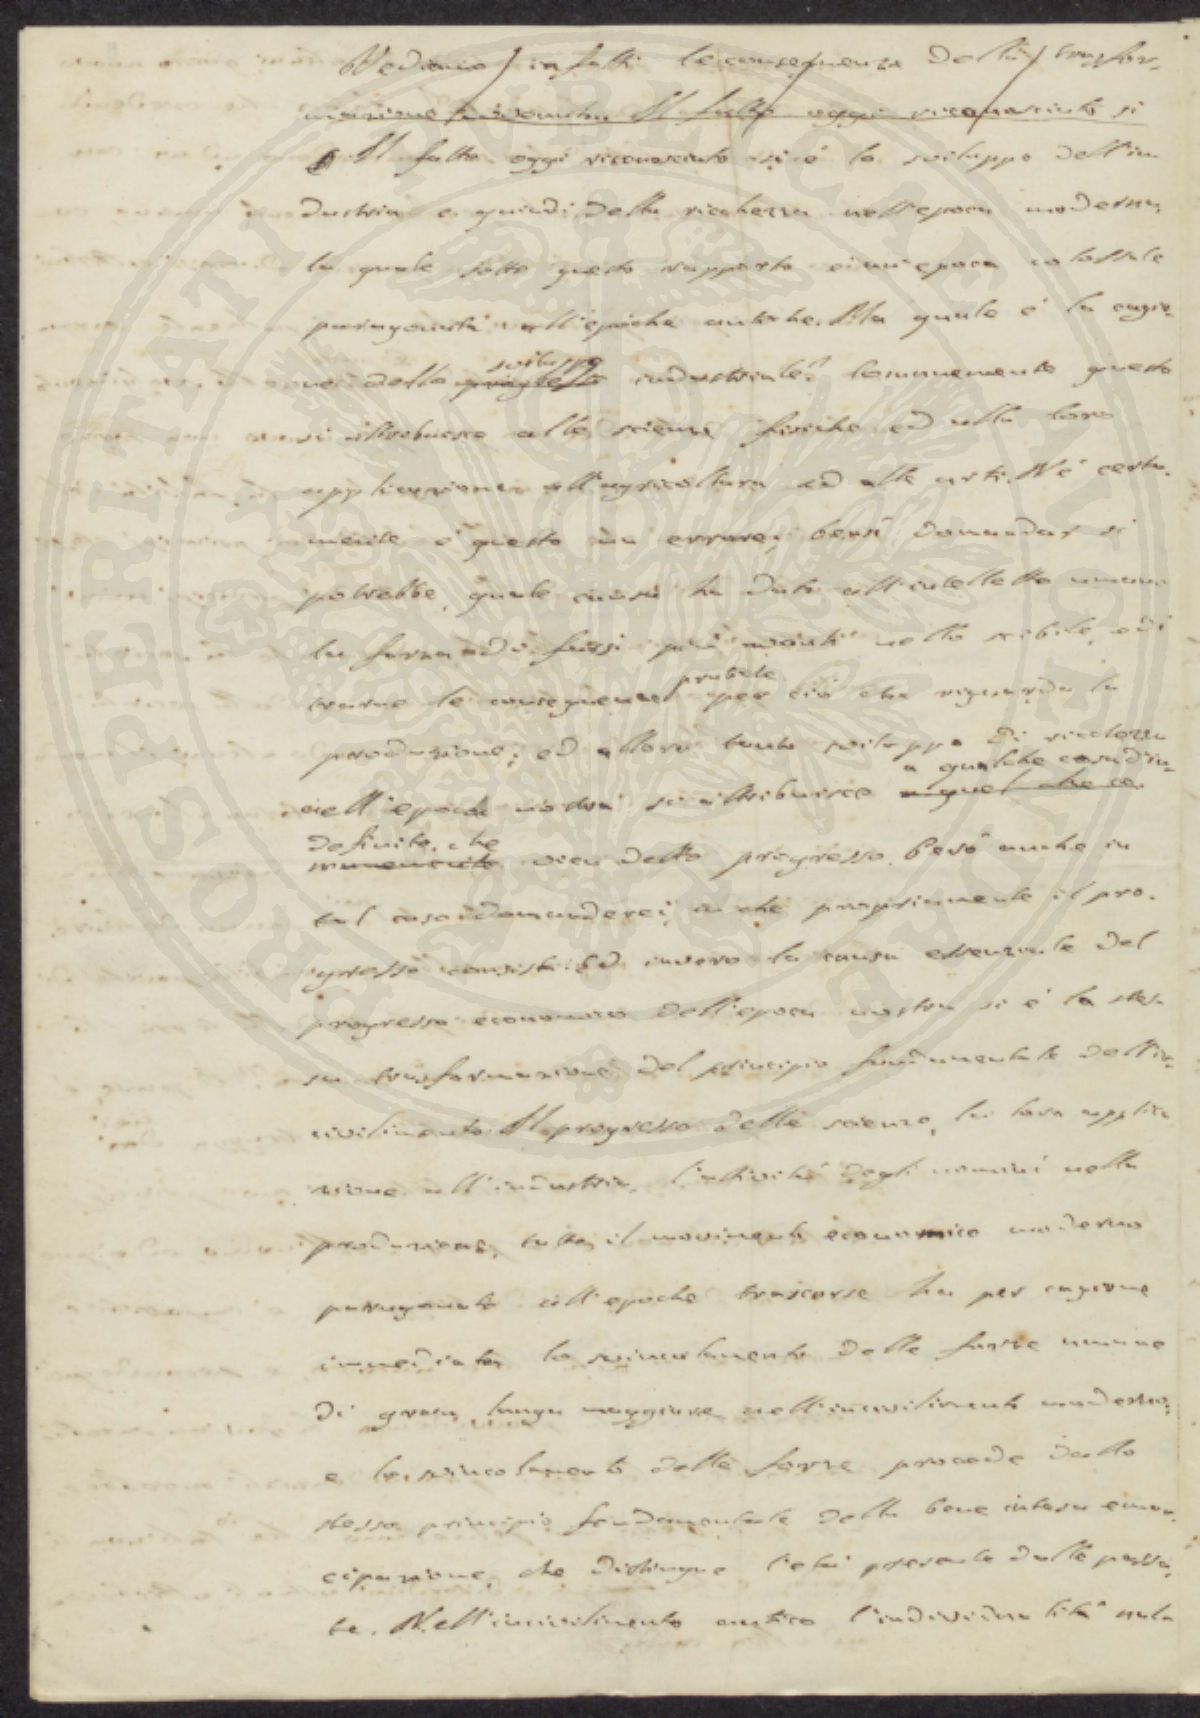 Vediamo infatti le conseguenze della trasfor-
mazione Il fatto oggi riconosciuto si
Il fatto oggi riconosciuto si è lo sviluppo dell'in
dustria e quindi della ricchezza nell'epoca moderna,
la quale sotto questo rapporto è un'epoca colossale
paragonata all'epoche antiche. Ma quale è la cagio-
ne dello progresso sviluppo industriale? Comunemente questo
si attribuisce alle scienze fisiche ed alla loro
applicazione all'agricoltura ed alle arti. Nè certa-
mente è questo un errore; bensì domandar si
potrebbe, quale cosa ha dato all'intelletto umano
la forza di farsi più avanti nello scibile, e di
trarne le conseguenze pratiche per ciò che riguarda la
produzione; ed allora tanto sviluppo di ricchezza
nell'epoca nostra si attribuisce a quel che co- a qualche cosa d'in-
munemente definito, che vien detto progresso. Però anche in
tal caso domanderei, in che propriamente il pro-
gresso consista. Ed invero la causa essenziale del
progresso economico dell'epoca nostra si è la stes-
sa trasformazione del principio fondamentale dell'in-
civilimento. Il progresso delle scienze, la loro applica
zione all'industria, l'attività degli uomini nella
produzione, tutto il movimento economico moderno
paragonato all'epoche trascorse ha per cagione
immediata lo svincolamento delle forze umane
di gran lunga maggiore nell'incivilimento moderno;
e lo svincolamento delle forze procede dallo
stesso principio fondamentale della bene intesa eman-
cipazione, che distingue l'età presente dalle passa-
te. Nell'incivilimento antico l'individualità nula